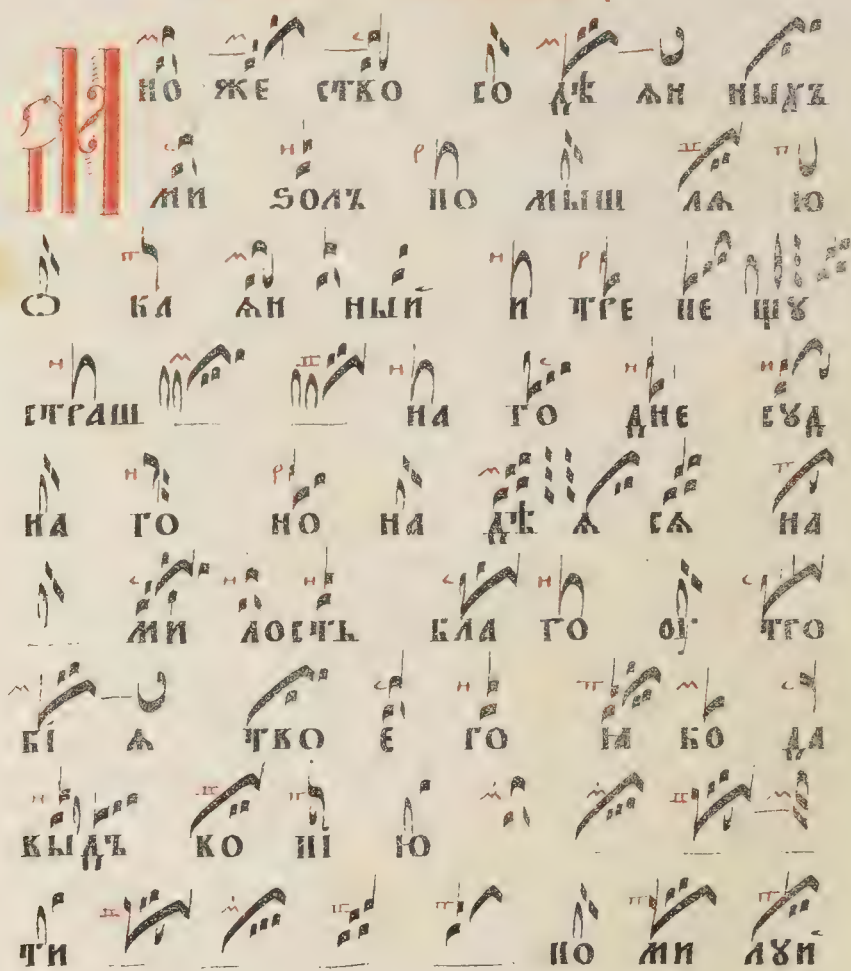 М НО ЖЕ СТВО СО ДѢ ѦН НЫХЪ
МИ ЅОЛЪ ПО МЫШ ЛѦ Ю
Ѡ КА ѦН НЫЙ И ТРЕ ПЕ ЩꙊ
СТРАШ НА ГО ДНЕ СꙊД
НА ГО НО НА ДѢ Ѧ СѦ НА
МИ ЛОСТЬ БЛА ГО ОУ ТРО
БІ Ѧ ТВО Е ГО Ꙗ КО ДА
ВЫДЪ ВО ПІ Ю
ТИ ПО МИ ЛꙊЙ